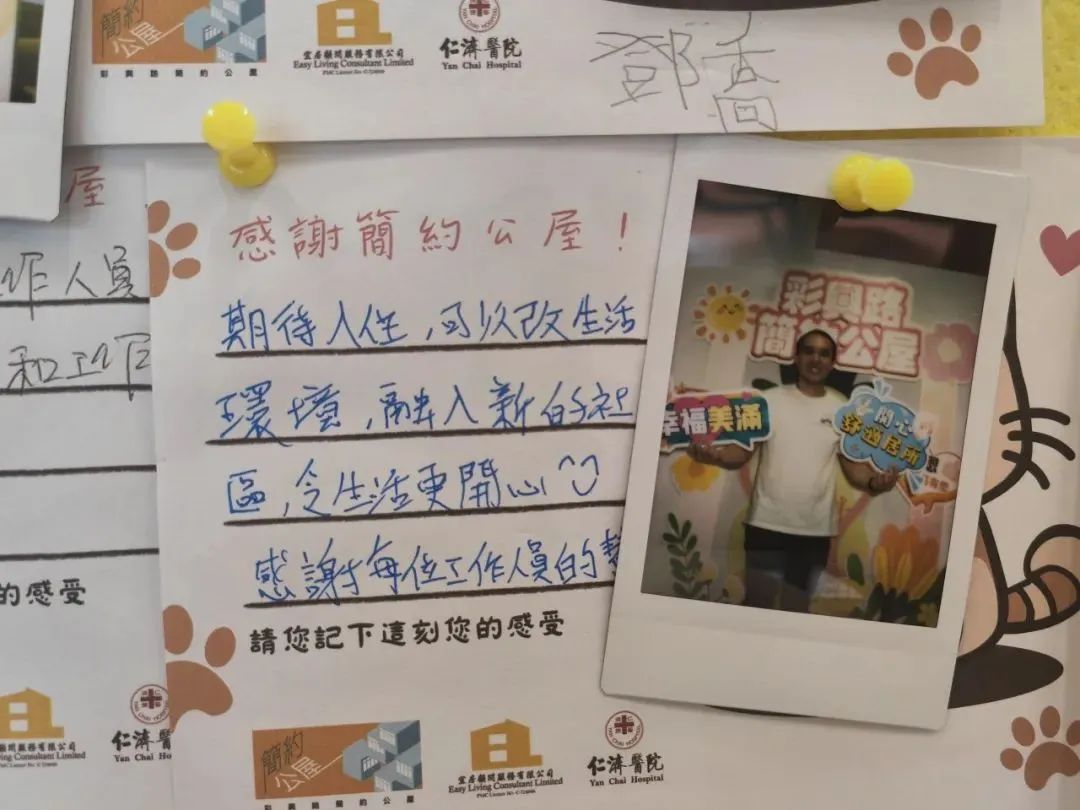 簡約
公屋
彩興路簡約公屋
宜居顧問服務有限公司
Easy Living Consultant Limited
仁濟醫院
Yan Chai Hospital
鄧喬
屋
作人員
和工作
的感受
ving Consultant Limited
仁濟醫
Yan Chai Ho
感謝簡約公屋!
期待入住,可以改生活
環境,融入新的社
區,令生活更開心
感謝每位工作人員的
請您記下這刻您的感受
簡約
公屋
彩興路簡約公屋
宜居顧問服務有限公司
Easy Living Consultant Limited
仁濟醫院
Yan Chai Hospital
彩興路
簡約公屋
幸福美滿
開心
舒適居所